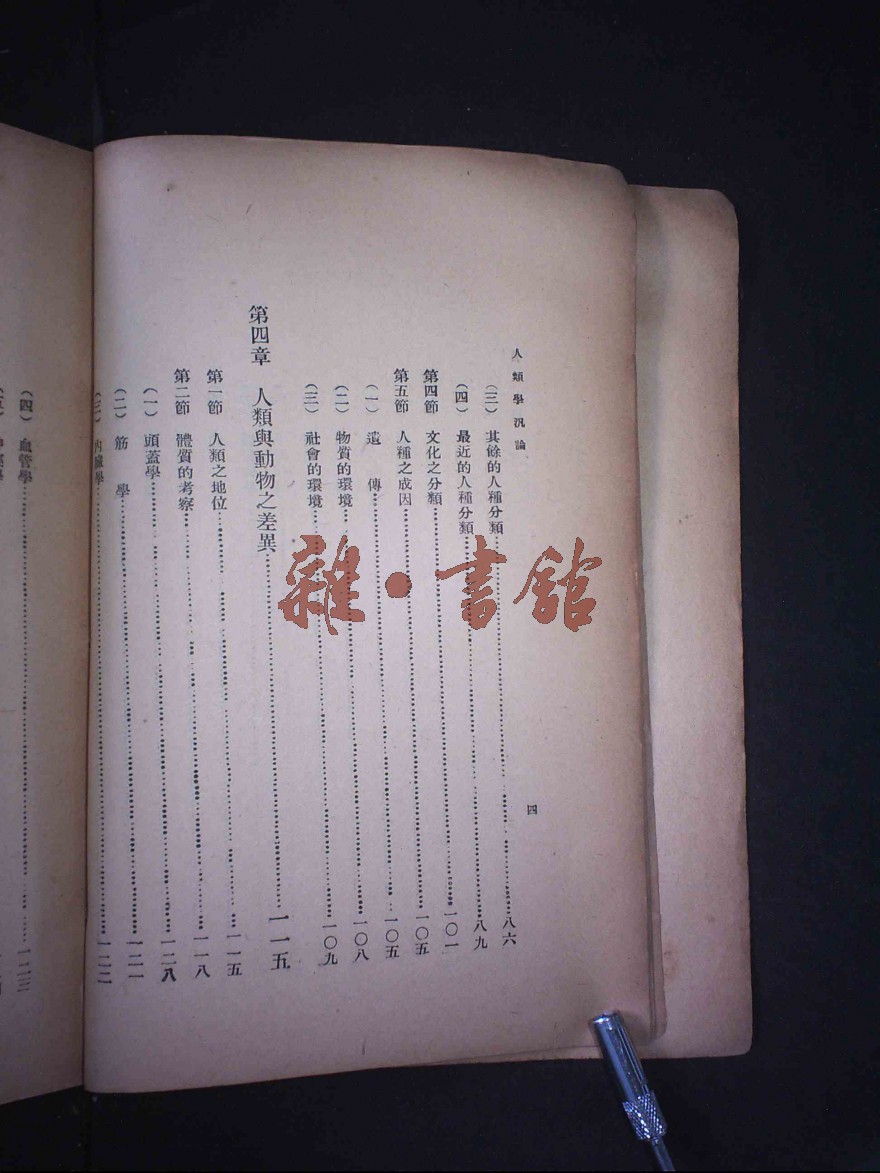 人類學汎論
四
(三) 其餘的人種分類 八六
(四) 最近的人種分類 八九
第四節 文化之分類 一〇一
第五節 人種之成因 一〇五
(一) 遺傳 一〇五
(二) 物質的環境 一〇八
(三) 社會的環境 一〇九
第四章 人類與動物之差異 一一五
第一節 人類之地位 一一五
第二節 體質的考察 一一八
(一) 頭蓋學 一二八
(二) 筋學 一二一
(三) 內臟學 一二二
(四) 血管學 一二三
雜·書館